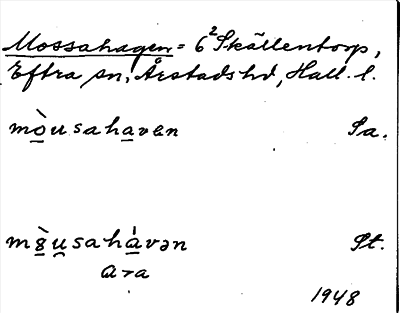 Mossahagen = 6² Skällentorp,
Eftra sn, Årstads hd, Hall. l.
mò̲usaha̲ven Sa.
mȣ̲̀u̲̮sahá̲vən St.
a > a
1948